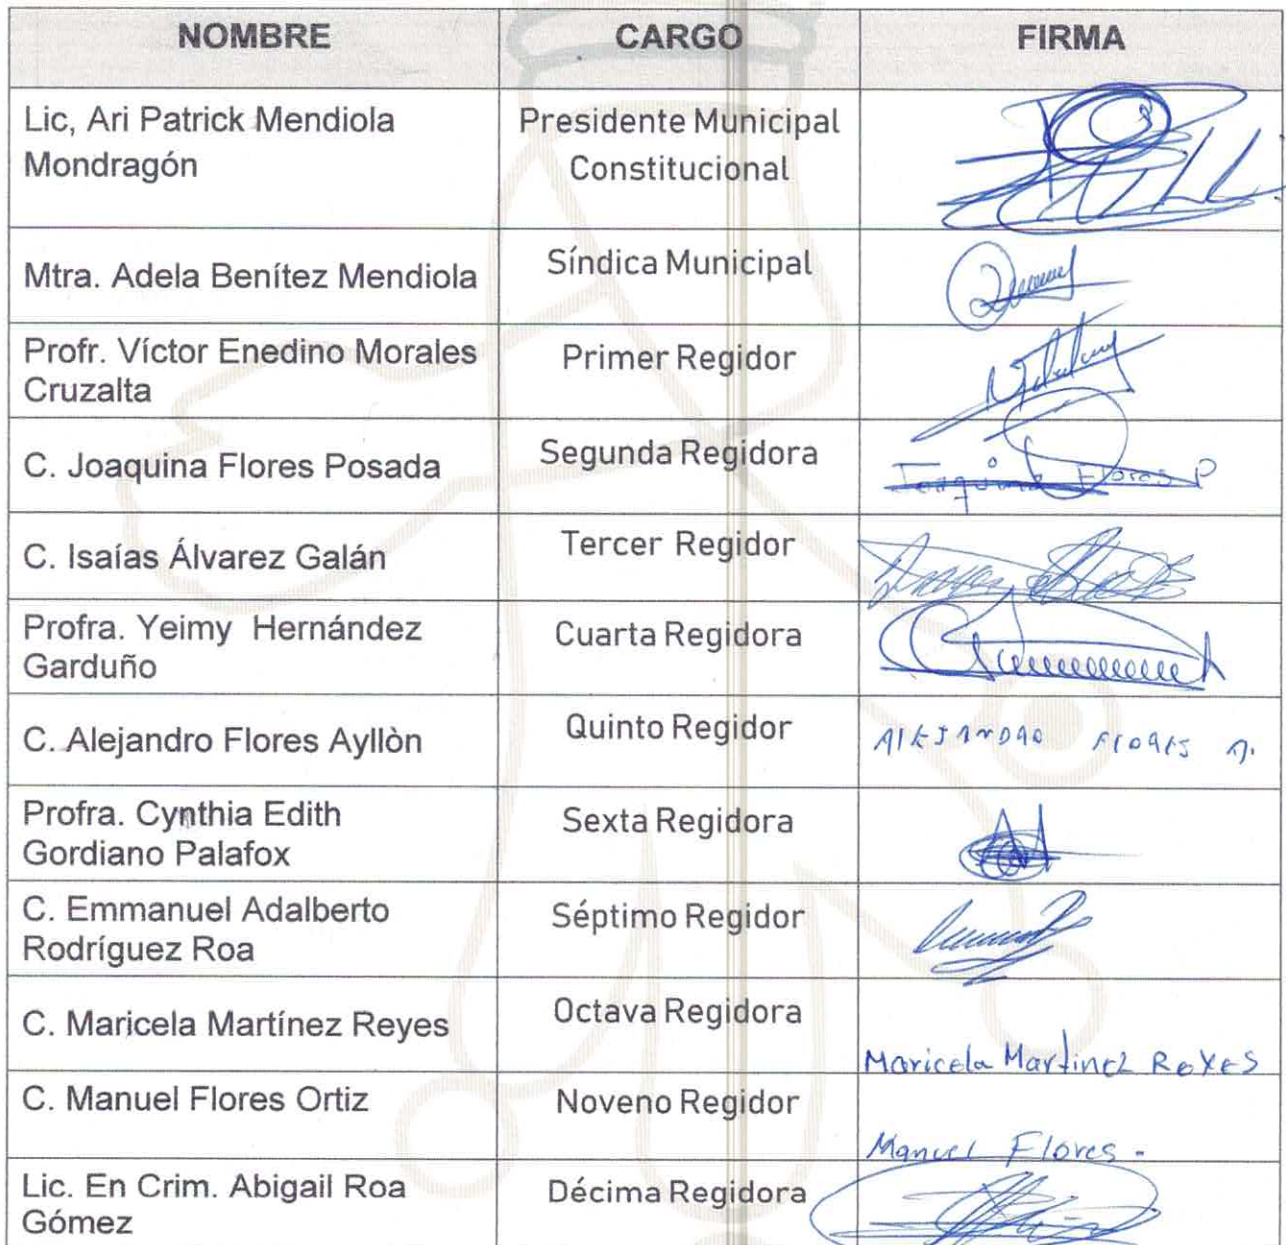 NOMBRE CARGO FIRMA
Lic, Ari Patrick Mendiola
Mondragón
Presidente Municipal
Constitucional
Mtra. Adela Benítez Mendiola
Síndica Municipal
Profr. Víctor Enedino Morales
Cruzalta
Primer Regidor
C. Joaquina Flores Posada
Segunda Regidora
Joaquina Flores P
C. Isaías Álvarez Galán
Tercer Regidor
Profra. Yeimy Hernández
Garduño
Cuarta Regidora
C. Alejandro Flores Ayllòn
Quinto Regidor
AlEJAnDRO FlORES A.
Profra. Cynthia Edith
Gordiano Palafox
Sexta Regidora
C. Emmanuel Adalberto
Rodríguez Roa
Séptimo Regidor
C. Maricela Martínez Reyes
Octava Regidora
Maricela MartinEz REYES
C. Manuel Flores Ortiz
Noveno Regidor
Manuel Flores.
Lic. En Crim. Abigail Roa
Gómez
Décima Regidora